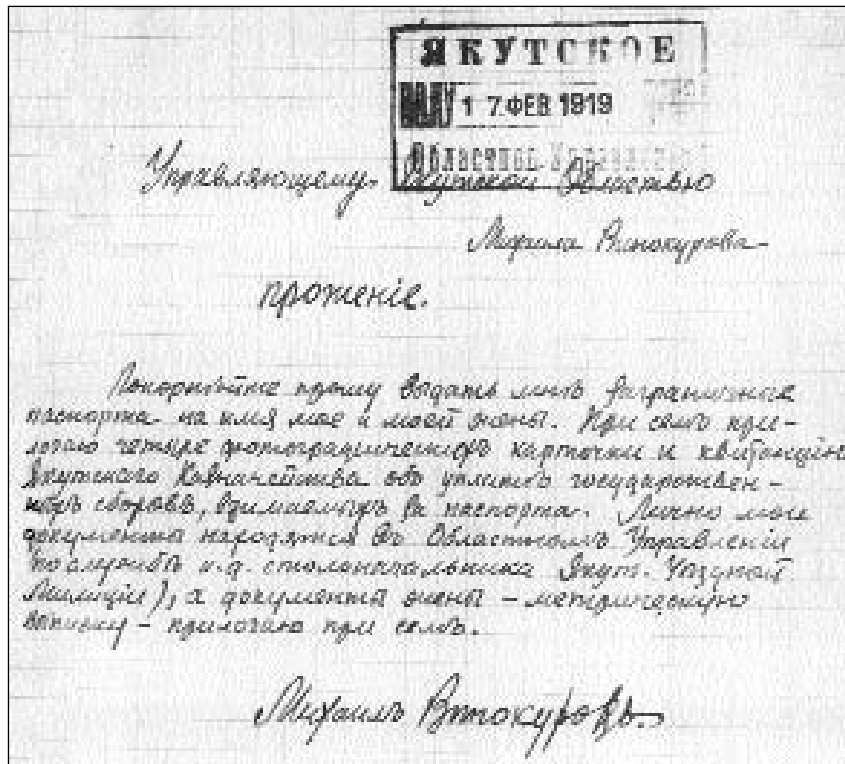 ЯКУТСКОЕ
17 ФЕВ 1919
Областное
Управляющему Якутской Областью
Михаила Винокурова
прошеніе.
Покорнѣйше прошу выдать мнѣ заграничные
паспорта на имя мое и моей жены. При семъ при-
лагаю четыре фотографическихъ карточки и квитанцію
Якутскаго Казначейства объ уплатѣ государствен-
ныхъ сборовъ, взимаемыхъ за паспорта. Лично мои
документы находятся въ Областномъ Управленіи
по службѣ и.д. столоначальника Якут. Уѣздной
Милиціи), а документы жены – метрическую
выписку – прилагаю при семъ.
Михаилъ Винокуровъ.